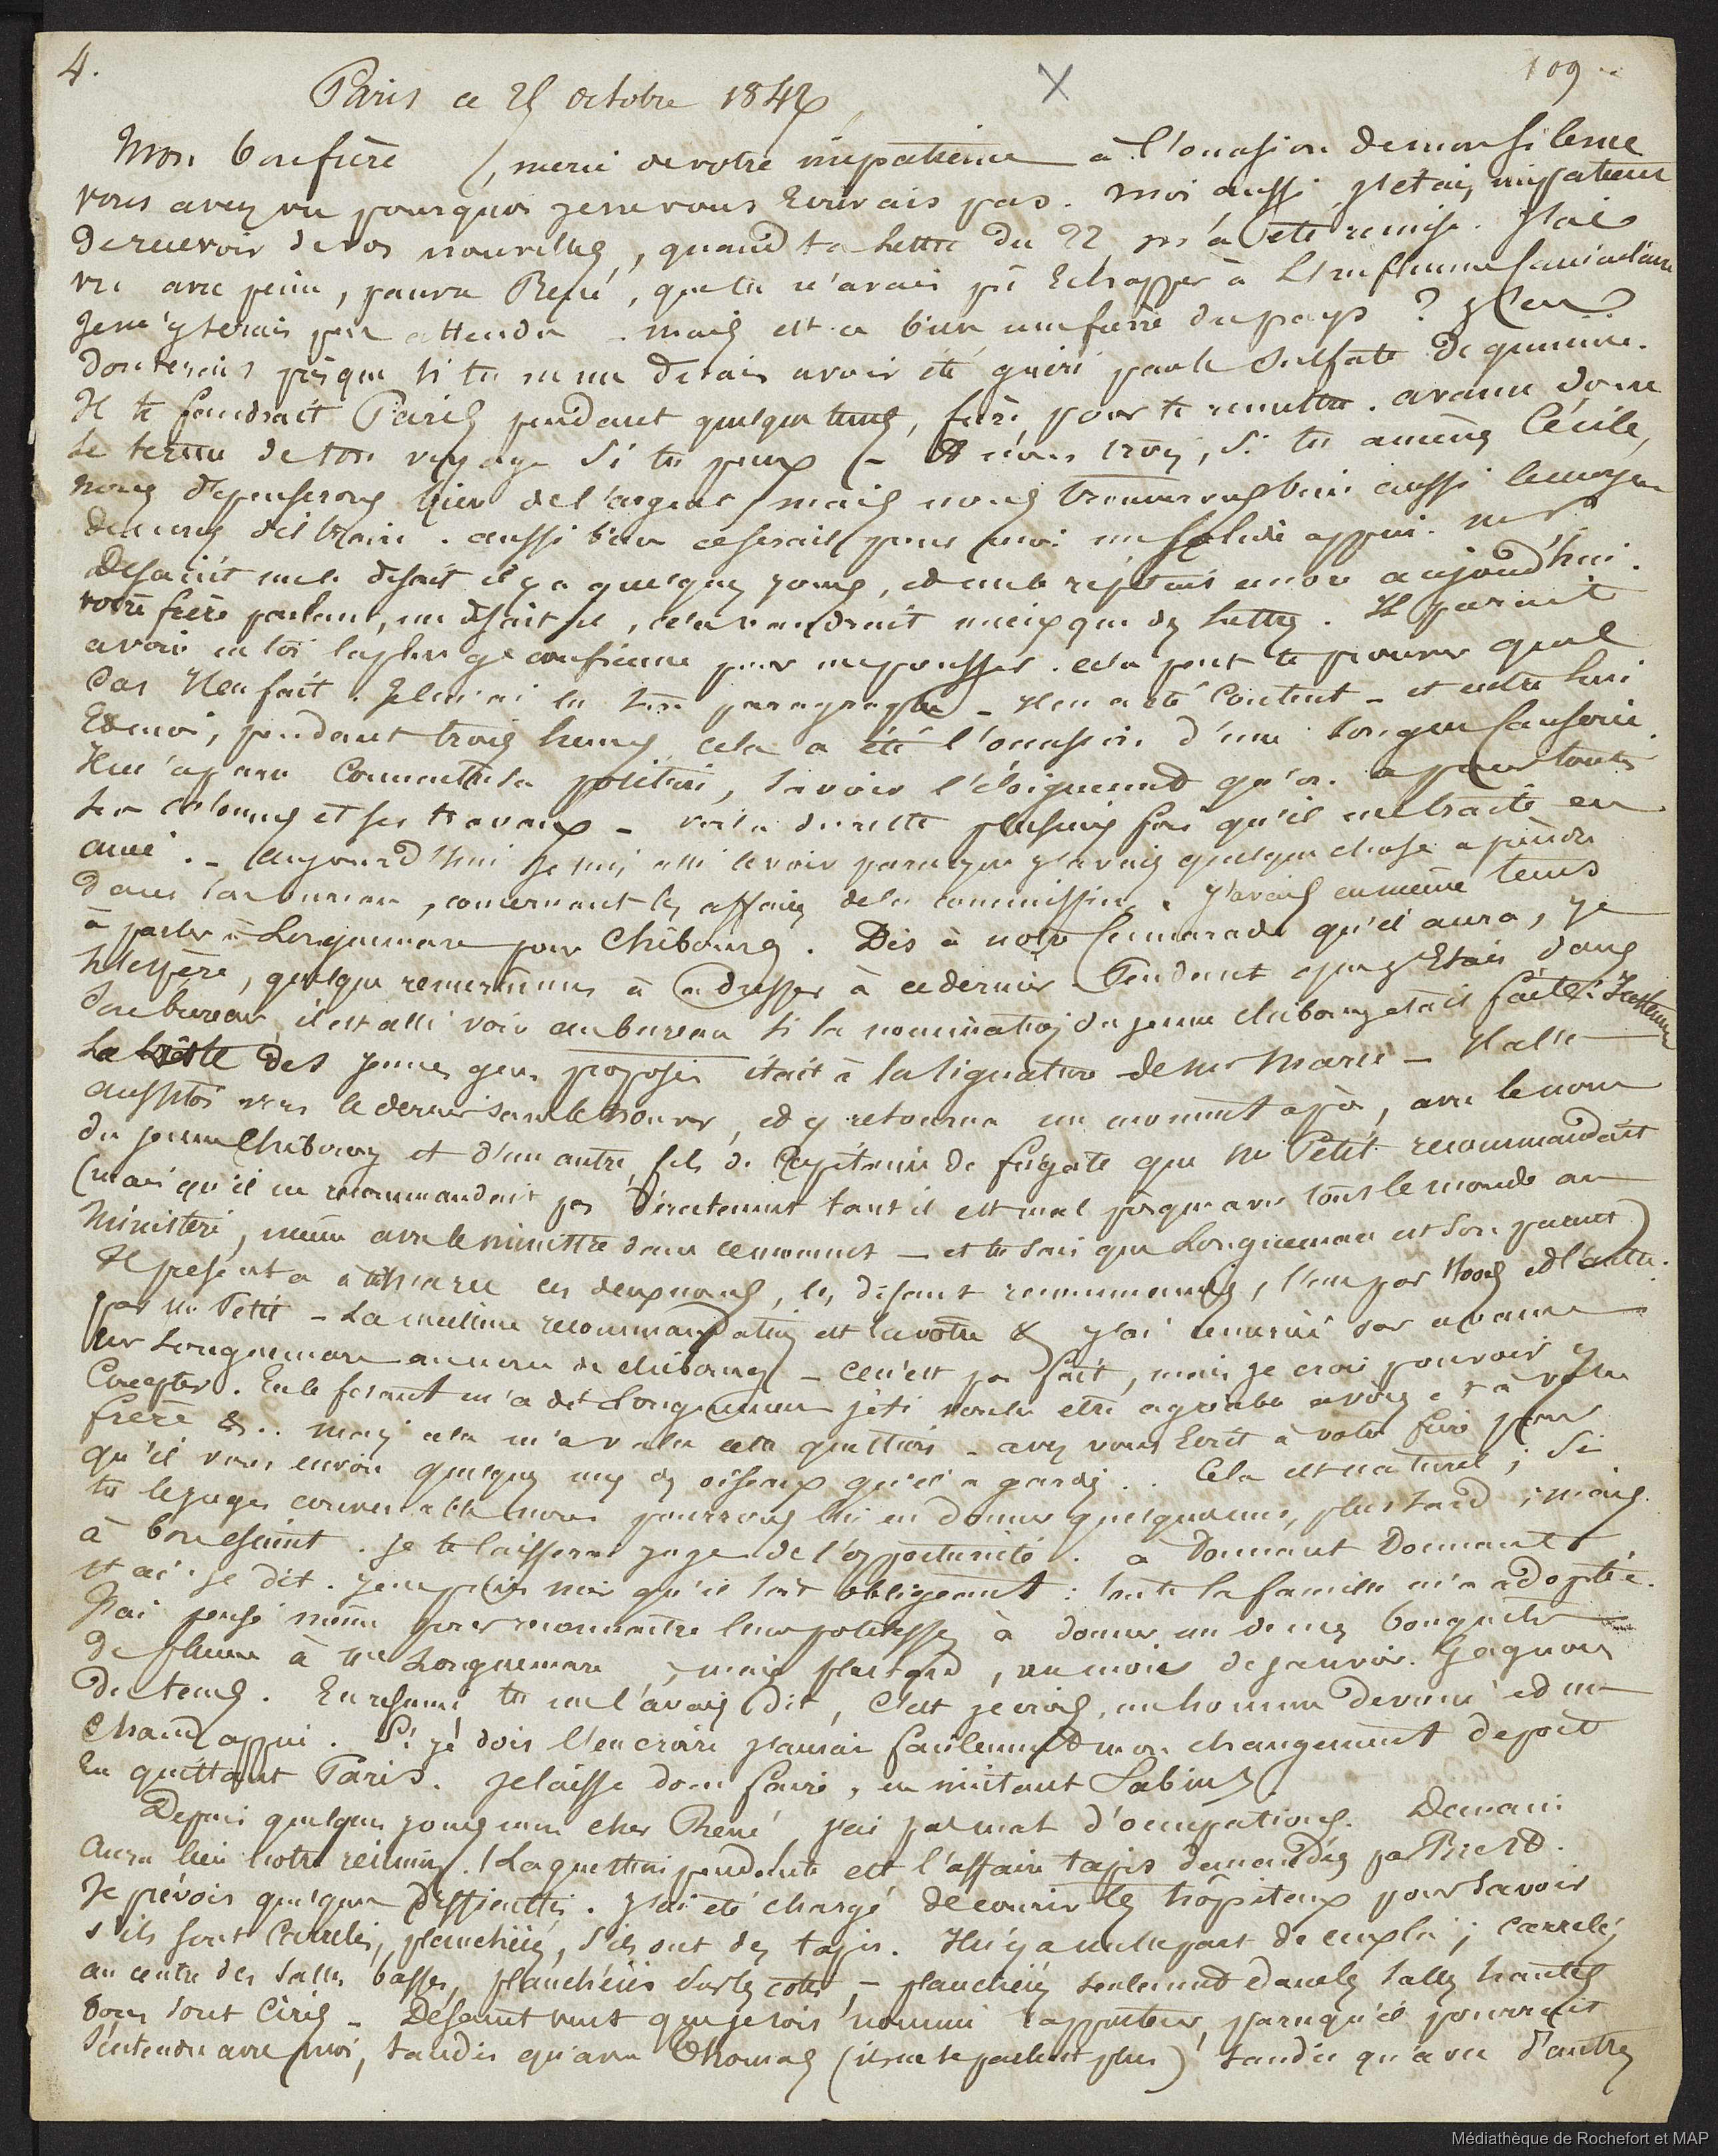 4.
109
Paris ce 25 octobre 184
X
Mon bon frère, merci de votre impatience à l'occasion de mon silence
vous avez vu pourquoi je ne vous écrivais pas. Moi aussi j'étais impatient
de recevoir de vos nouvelles, quand ta lettre du 22 m'a été remise. J'ai
vu avec peine, pauvre René, que tu n'avais pû échapper à l'influence
je m'y serais pas attendu - mais est ce bien une fièvre du pays ? J'en
douterais pisque si tu devais avoir été guéri par le sulfate de quinine.
Il te faudrait Paris pendant quelque tems, frère, pour te remettre. avance donc
le terme de ton voyage si tu peux - Et nous trois, si tu amènes Cécile,
nous dépenserons bien de l'argent mais nous trouverons bien aussi le moyen
de nous distraire. aussi bien ce serait pour moi un solide appui. Mr
Desaint me le disait il y a quelques jours, et me le répétait encore aujourd'hui.
votre frère parlant, me disait il, cela vaudrait mieux que des lettres. Il parait
avoir en toi la plus gde confiance pour me pousser. cela peut te prouver quel
cas il en fait. Je lui ai lu ton paragraphe - il en a été content - et entre lui
et moi, pendant trois heures cela a été l'occasion d'une longue causerie.
Il m'a paru connaitre sa position, savoir l'éloignement qu'on a pour toutes
ses colonnes et ses travaux - voila du reste plusieurs fois qu'il me traite en
ami. - Aujourd'hui je suis allé le voir parceque j'avais quelque chose à prendre
dans son bureau, concernant les affaires de la commission. J'avais en même tems
à parler à Longuemare pour Chibourg. Dis à notre camarade qu'il aura, je
l'espère, quelques remerciemens à adresser à ce dernier. Pendant que j'étais dans
son bureau il est allé voir au bureau si la nomination du jeune Chibourg était faite.
La liste des jeunes gens proposés était à la signature de Mr Marec - Il alla
aussitôt vers le dernier sans le trouver, et y retourna un moment après, avec le nom
du jeune Chibourg et d'un autre, fils de Capitaine de frégate que Mr Petit recommandait
(mais qu'il ne recommandait pas directement tant il est mal pisque avec tout le monde au
Ministère, même avec le ministre dans ce moment - et tu sais que Longuemare est son parent)
Il présenta à Mr Marec ces deux noms, les disant recommandés, l'un par Mr et l'autre
par Mr Petit - La meilleure recommandation est la votre & j'ai remercié par avance
Mr Longuemare au nom de Chibourg - ce n'est pas fait, mais je crois pouvoir y
compter. En le faisant m'a dit Longuemare j'ai voulu être agréable à vous et à votre
frère &.. mais cela m'a valu cette question - avez vous écrit à votre frère pour
qu'il vous envoie quelques uns des oiseaux qu'il a gardés.. Cela est naturel; si
tu le juges convenable nous pourrons lui en donner quelques uns, plus tard; mais
à bon escient. je te laisserai juge de l'opportunité. a donnant donnant
je dit. qu'il soit obligeant: toute la famille m'a adopté.
J'ai pensé même pour reconnaitre leurs politesses à donner un de mes bouquets
de fleurs à Me Longuemare, mais plus tard, au mois de janvier. Gagnons
du tems. En résumé tu me l'avais dit, c'est je crois, un homme dévoué et un
chaud appui. Si je dois l'en croire j'aurai facilement mon changement de port
en quittant Paris. Je laisse donc faire, en imitant Sabin.
Depuis quelques jours mon cher René, j'ai pas mal d'occupations. Demain
aura lieu notre réunion. La question pendante est l'affaire tapis demandés par Brest.
Je prévois quelques difficultés. J'ai été chargé de courir les hôpitaux pour savoir
s'ils sont carrelés, planchéiés, s'ils ont des tapis. Il n'y a nulle part de emploi; carrelés
au centre des salles basses, planchéiés sur les cotés - planchéiés seulement dans les salles hautes
tous sont cirés - Desaint veut que je sois nommé rapporteur, parce qu'il pourrait
s'entendre avec moi, tandis qu'avec Thomas (ils ne se parlent plus) tandis qu'avec d'autres
Médiathèque de Rochefort et MAP